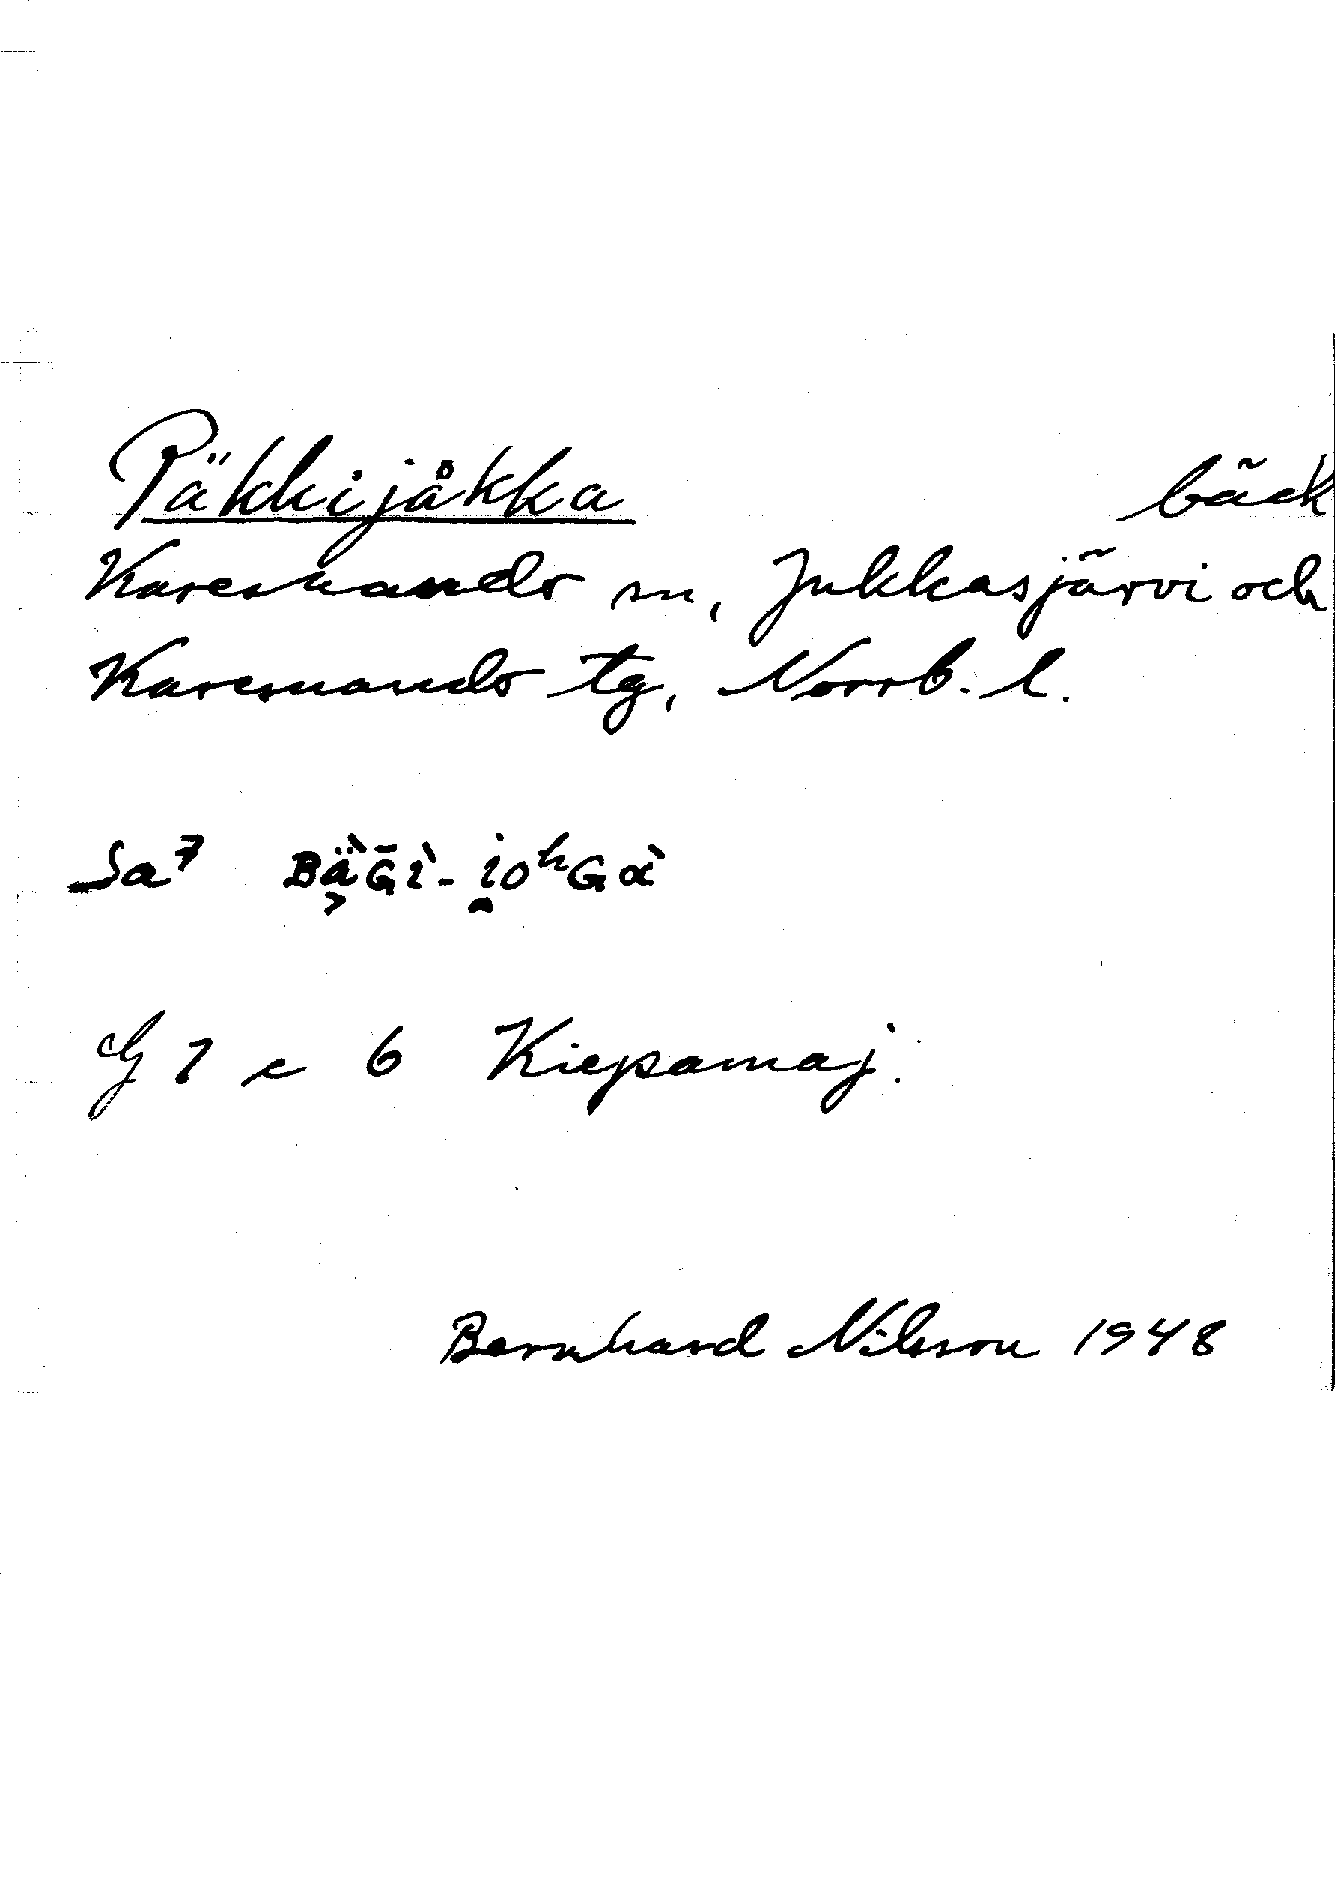 Päkkijåkka bäck
Karesuando sn, Jukkasjärvi och
Karesuando tg, Norrb. l.
Sa⁷ Bä̀Ḡi̇̀-i̯oʰGɑ̀
G 7 c 6 Kiepamaj.
Bernhard Nilsson 1948